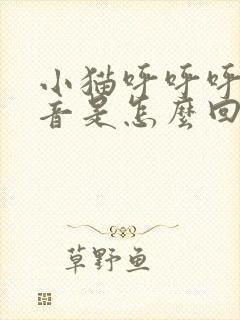 小猫呼呼呼
音是怎麼回
草野鱼